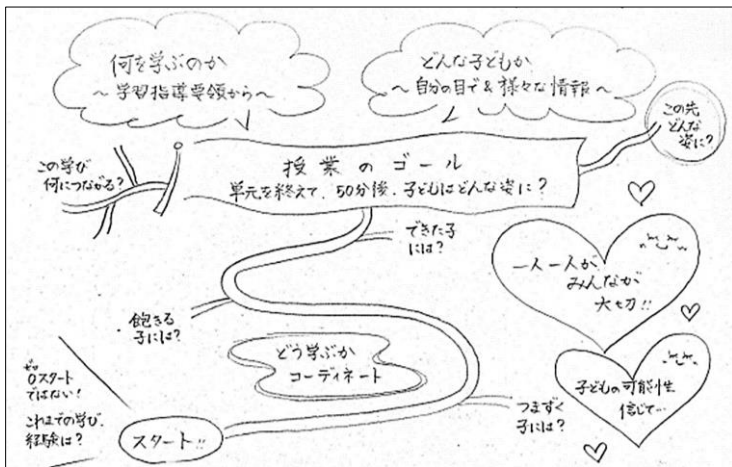 何を学ぶのか
～学習指導要領から～
どんな子どもか
～自分の目で&様々な情報～
この先
どんな
姿に?
この学び
何につながる?
授業のゴール
単元を終えて、50分後、子どもはどんな姿に?
できた子
には?
一人一人が
みんなが
大切!!
飽きる
子には?
どう学ぶか
コーディネート
ゼロ
0スタート
ではない!
これまでの学び、
経験は?
スタート!!
つまずく
子には?
子どもの可能性
信じて…